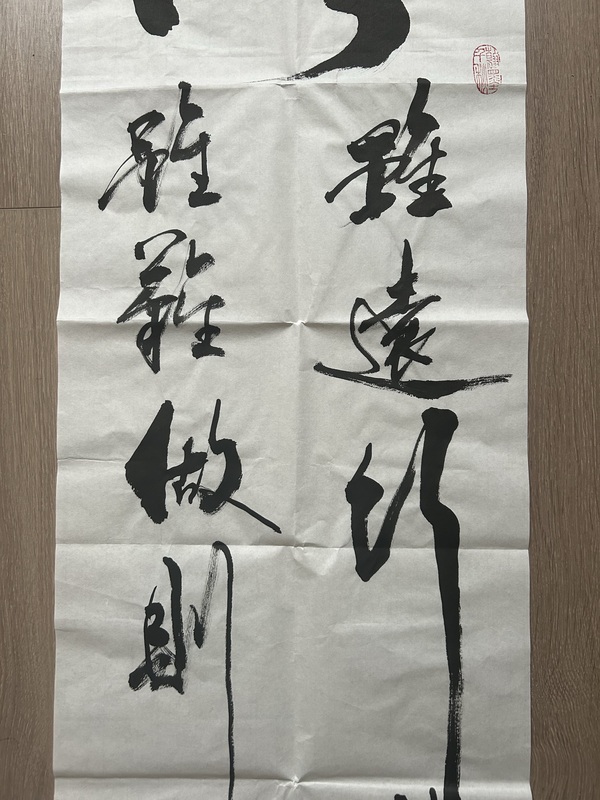 雖遠行
雖難做則